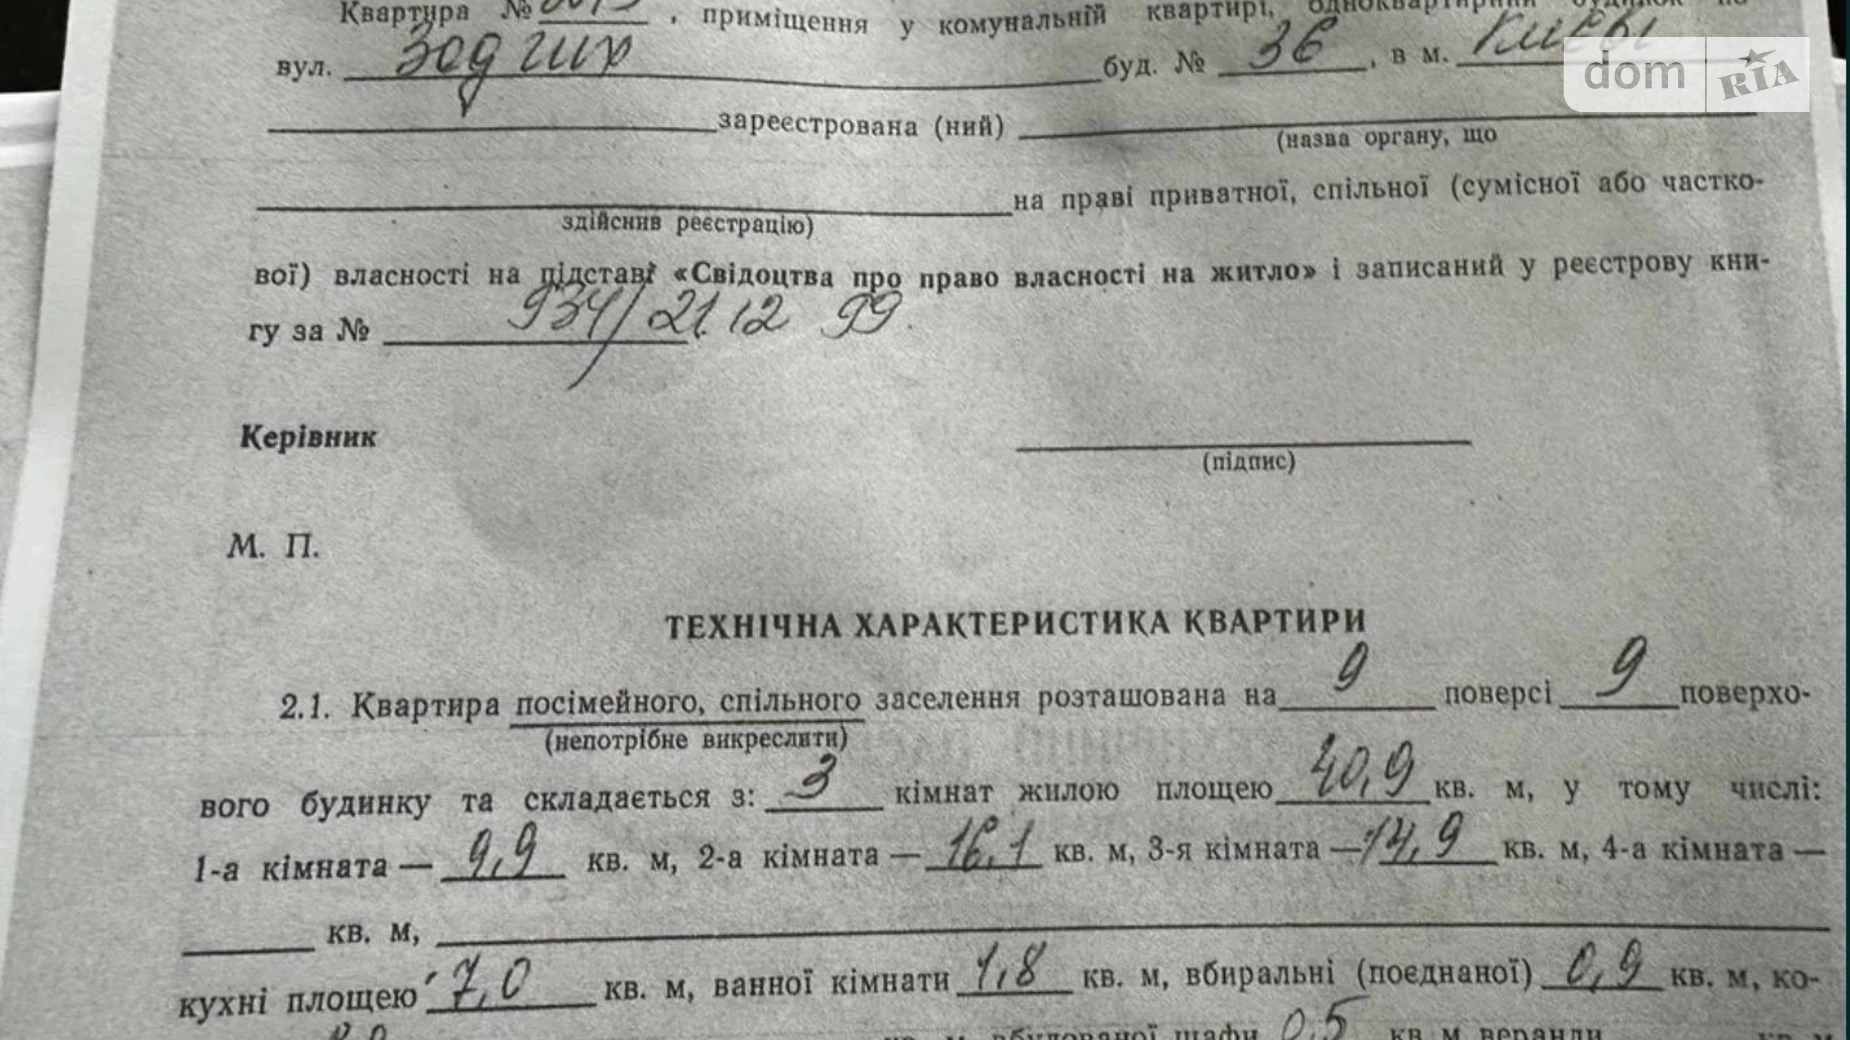 Квартира № , приміщення у комунальній квартирі, одноквартирний будинок по
вул. Зодчих буд. № 36, в м. Києві
dom RIA
зареєстрована (ний)
(назва органу, що
на праві приватної, спільної (сумісної або частко-
здійснив реєстрацію)
вої) власності на підставі «Свідоцтва про право власності на житло» і записаний у реєстрову кни-
гу за № 934/21.12 99.
Керівник
(підпис)
М. П.
ТЕХНІЧНА ХАРАКТЕРИСТИКА КВАРТИРИ
2.1. Квартира посімейного, спільного заселення розташована на 9 поверсі 9 поверхо-
(непотрібне викреслити)
вого будинку та складається з: 3 кімнат жилою площею 40,9 кв. м, у тому числі:
1-а кімната — 9,9 кв. м, 2-а кімната — 16,1 кв. м, 3-я кімната — 14,9 кв. м, 4-а кімната —
кв. м,
кухні площею 7,0 кв. м, ванної кімнати 1,8 кв. м, вбиральні (поєднаної) 0,9 кв. м, ко-
вбудованої шафи 0,5 кв м веранди